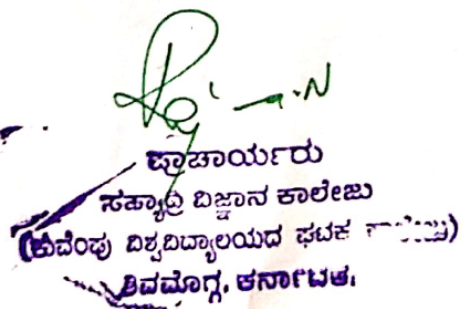 ಪ್ರಾಚಾರ್ಯರು
ಸಹ್ಯಾದ್ರಿ ವಿಜ್ಞಾನ ಕಾಲೇಜು
(ಕುವೆಂಪು ವಿಶ್ವವಿದ್ಯಾಲಯದ ಘಟಕ
ಶಿವಮೊಗ್ಗ, ಕರ್ನಾಟಕ.